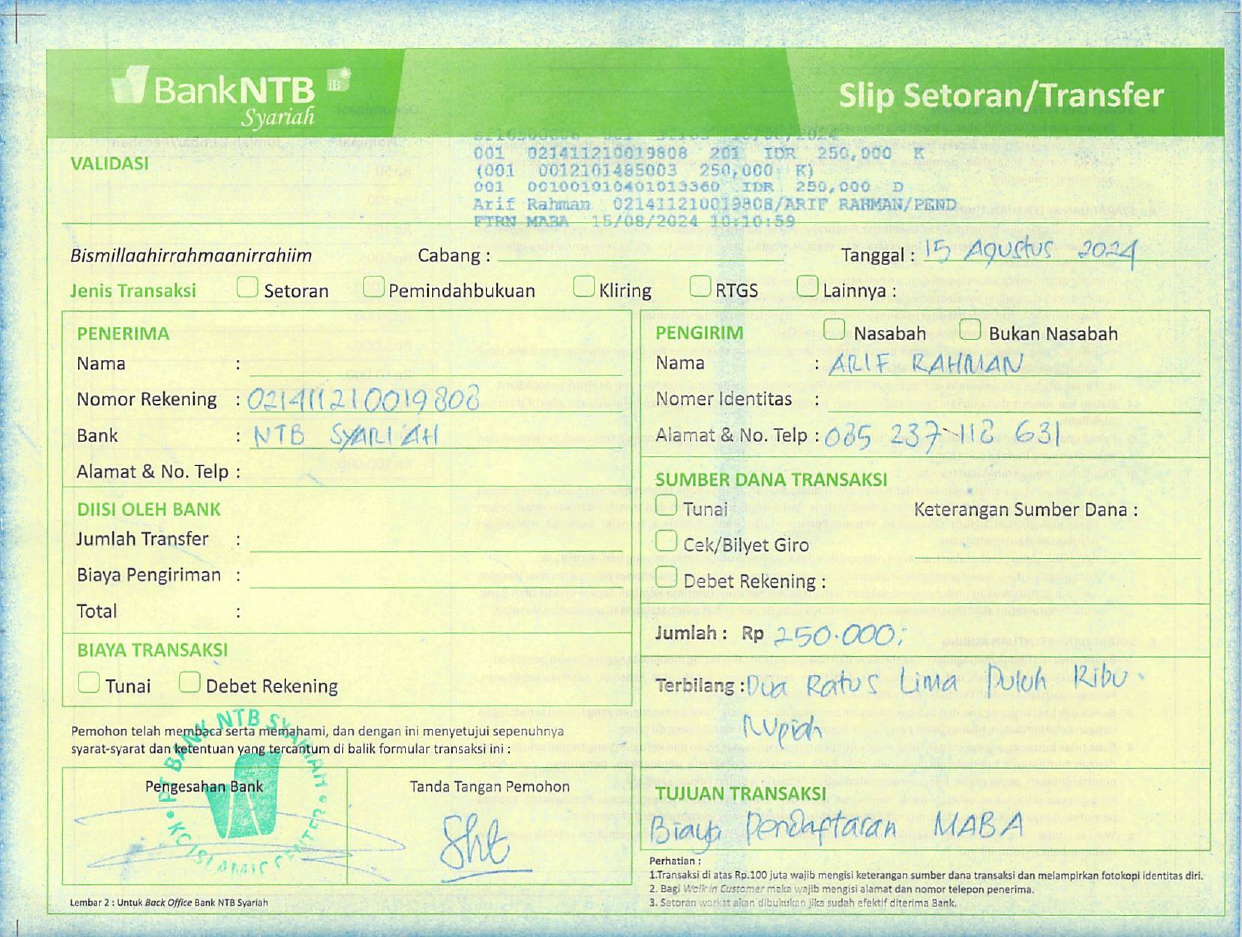 BankNTB
Syariah
Slip Setoran/Transfer
VALIDASI
001 021411210019808 201 IDR 250,000 K
(001 0012101485003 250,000 K)
001 001001010401013360 IDR 250,000 D
Arif Rahman 021411210019808/ARIF RAHMAN/PEND
FTRN MABA 15/08/2024 10:10:59
Bismillaahirrahmaanirrahiim Cabang : Tanggal : 15 Agustus 2024
Jenis Transaksi Setoran Pemindahbukuan Kliring RTGS Lainnya :
PENERIMA
Nama :
Nomor Rekening : 021411210019808
Bank : NTB SYARIAH
Alamat & No. Telp :
DIISI OLEH BANK
Jumlah Transfer :
Biaya Pengiriman :
Total :
BIAYA TRANSAKSI
Tunai Debet Rekening
PENGIRIM Nasabah Bukan Nasabah
Nama : ARIF RAHMAN
Nomer Identitas :
Alamat & No. Telp : 085 237 118 631
SUMBER DANA TRANSAKSI
Tunai Keterangan Sumber Dana :
Cek/Bilyet Giro
Debet Rekening :
Jumlah : Rp 250.000;
Terbilang : Dua Ratus Lima Puluh Ribu
Rupiah
TUJUAN TRANSAKSI
Biaya Pendaftaran MABA
Pemohon telah membaca serta memahami, dan dengan ini menyetujui sepenuhnya
syarat-syarat dan ketentuan yang tercantum di balik formular transaksi ini :
Pengesahan Bank Tanda Tangan Pemohon
PT BANK NTB SYARIAH
KC ISLAMIC CENTER
Perhatian :
1.Transaksi di atas Rp.100 juta wajib mengisi keterangan sumber dana transaksi dan melampirkan fotokopi identitas diri.
2. Bagi Walk in Customer maka wajib mengisi alamat dan nomor telepon penerima.
3. Setoran warkat akan dibukukan jika sudah efektif diterima Bank.
Lembar 2 : Untuk Back Office Bank NTB Syariah